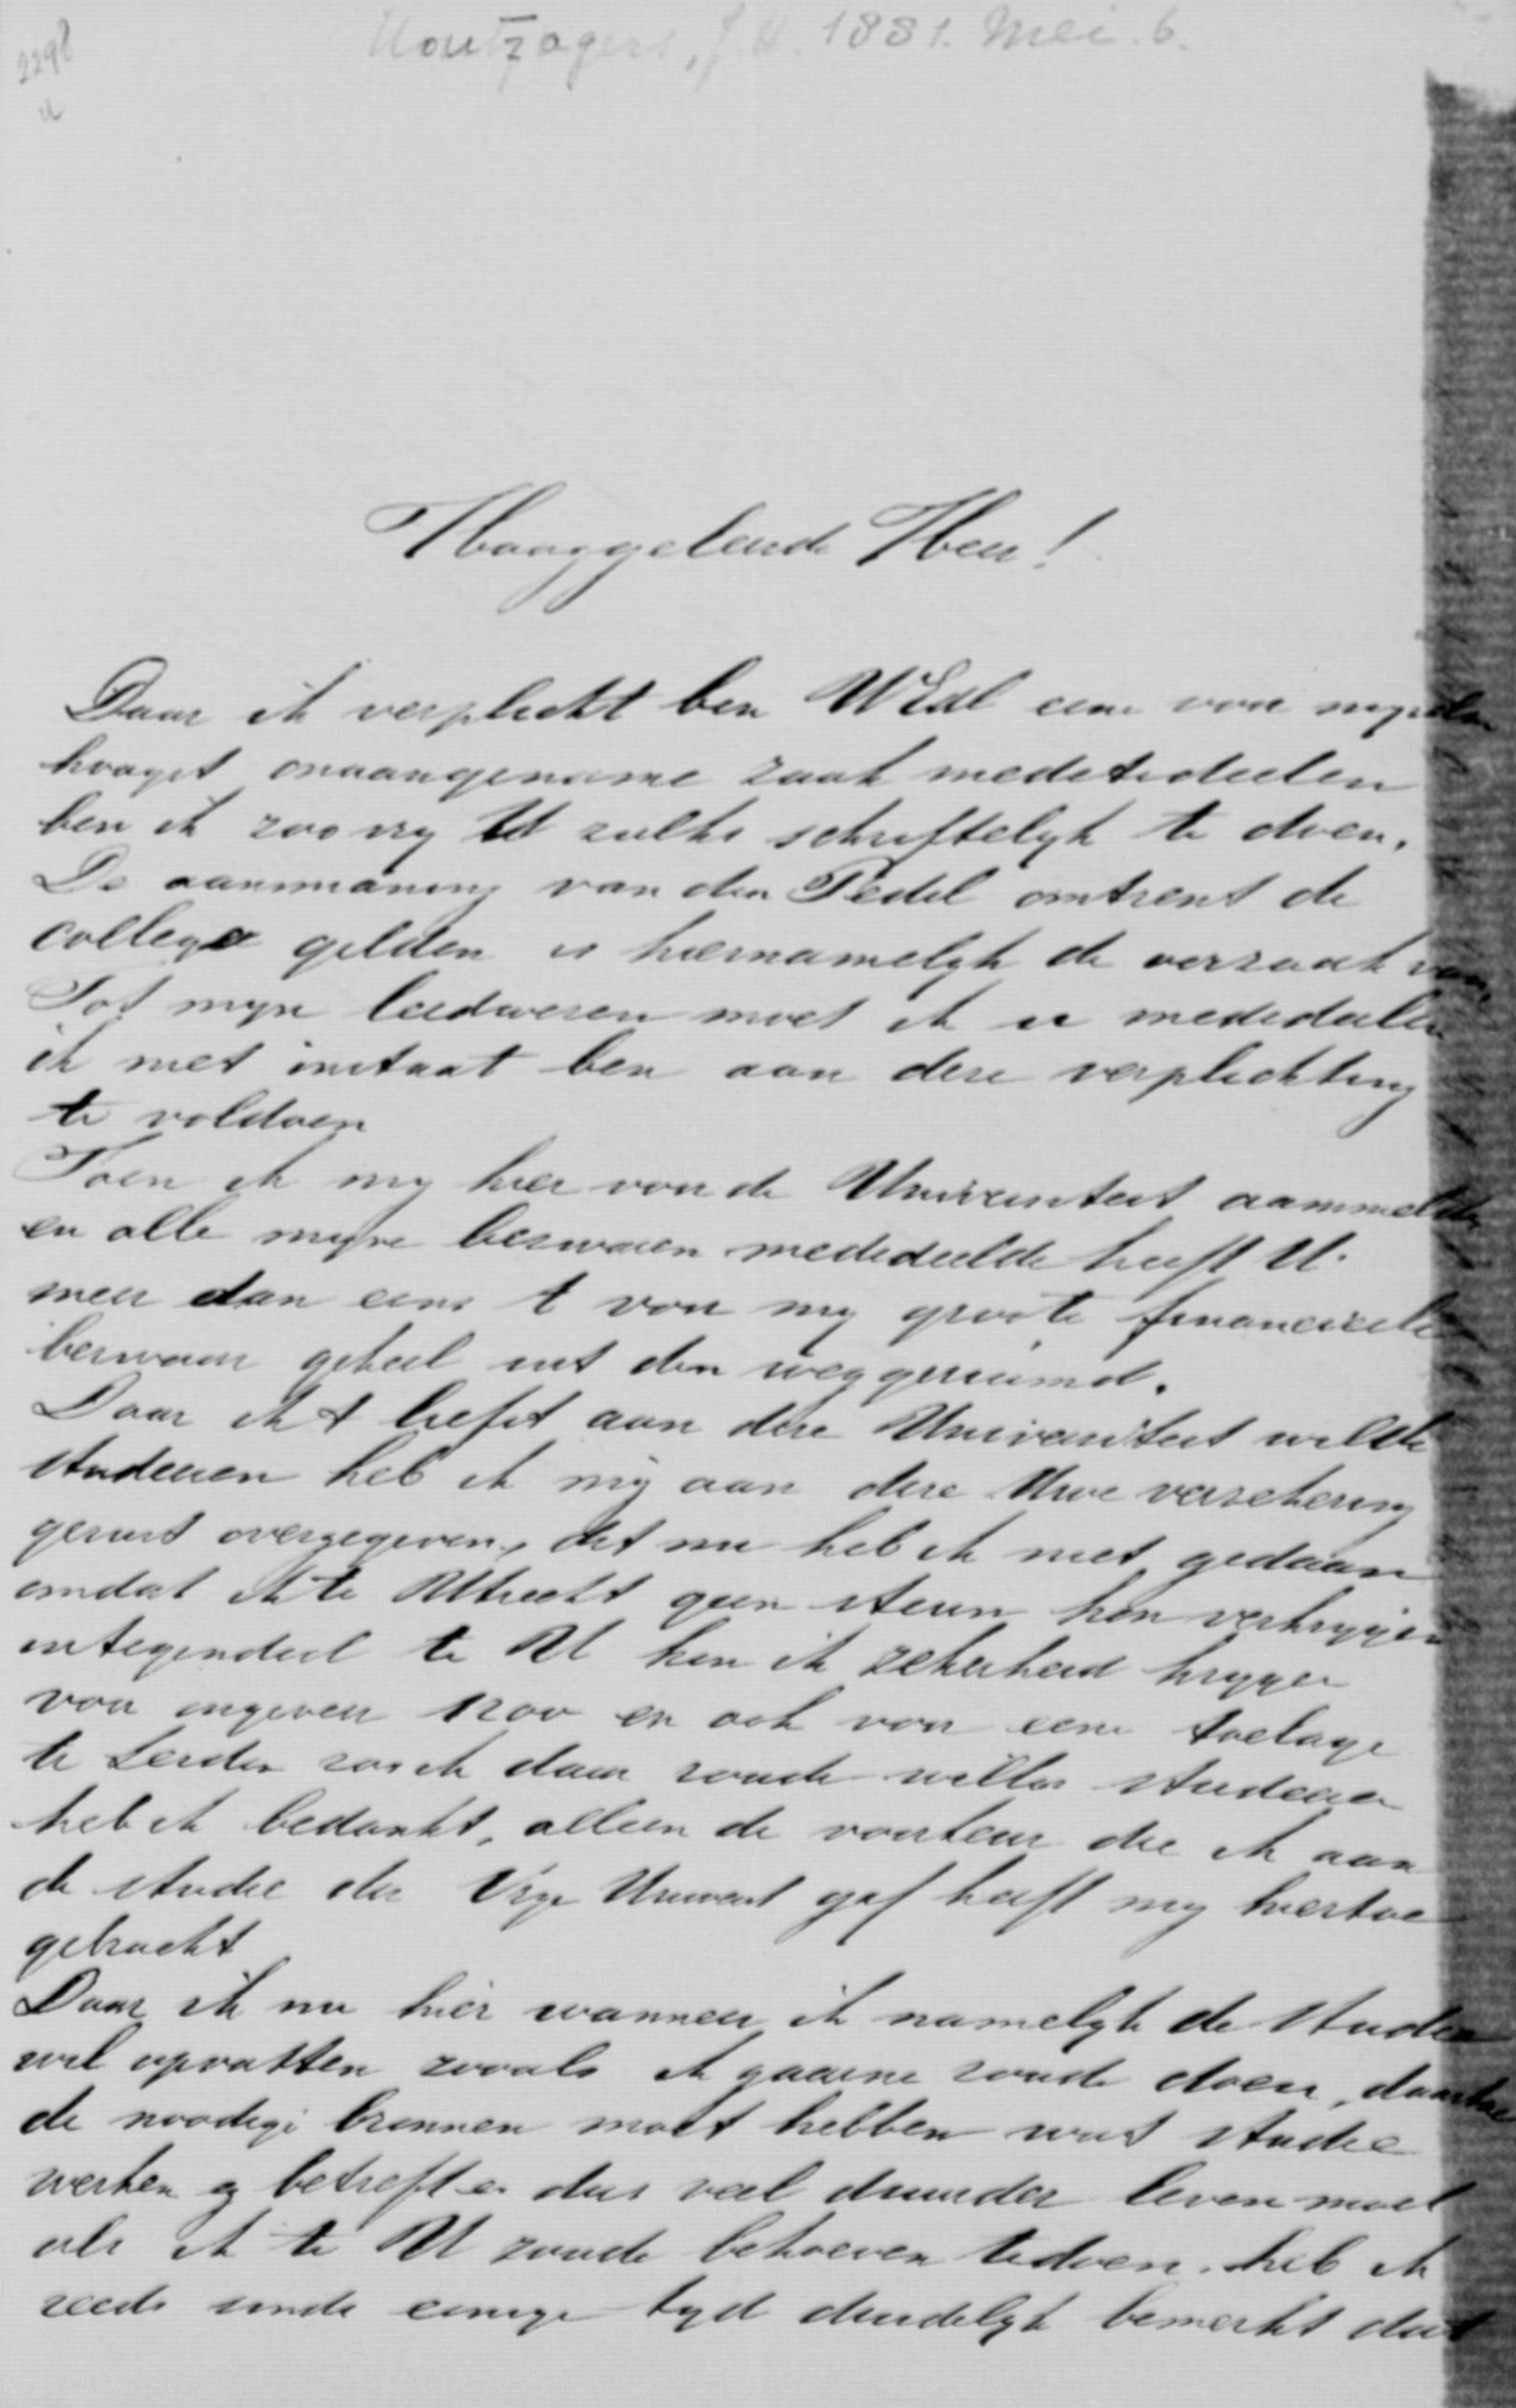 2298
Houtzagers, J H. 1881. Mei. 6.
Hooggeleerde Heer!
Daar ik verplicht ben UWEdl eene voor myselv
hoogst onaangename zaak medetedeelen
ben ik zoo vry U zulks schriftelyk te doen.
De aanmaning van den Pedel omtrent de
college gelden is hiernamelyk de oorzaak van,
Tot myn leedwezen moet ik u mededeelen
ik niet instaat ben aan deze verplichting
te voldoen
Toen ik my hier voor de Universiteit aanmeldde
en alle myne bezwaren mededeelde heeft U.
meer dan eens 't voor my groote financieele
bezwaar geheel uit den weg geruimd.
Daar ik 't liefst aan deze Universiteit wilde
studeeren heb ik my aan deze Uwe verzekering
gerust overgegeven, dit nu heb ik niet gedaan
omdat ik te Utrecht geen steun kon verkrygen
integendeel te U kon ik zekerheid krygen
voor ongeveer 1200 en ook voor eene toelage
te Leiden zoo ik daar zoude willen studeeren
heb ik bedankt, alleen de voorkeur die ik aan
de studie der Vrye Universt gaf heeft my hiertoe
gebracht
Daar ik nu hier wanneer ik namelyk de studie
wil opvatten zooals ik gaarne zoude doen, daartoe
de noodige bronnen moet hebben wat studie
werken betreft en dus veel duurder leven moet
als ik te U zoude behoeven tedoen. heb ik
reeds sinds eenige tyd duidelyk bemerkt dat